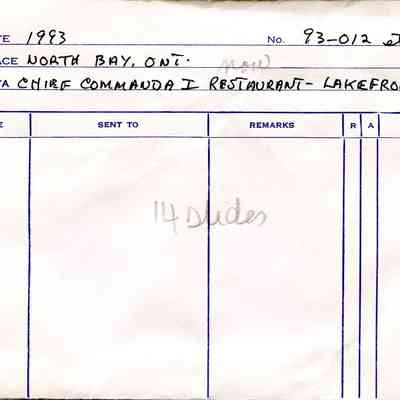 TE 1993 No. 93-012
ACE NORTH BAY, ONT. now
TA CHIEF COMMANDA I RESTAURANT - LAKEFRO
E SENT TO REMARKS R A
14 slides